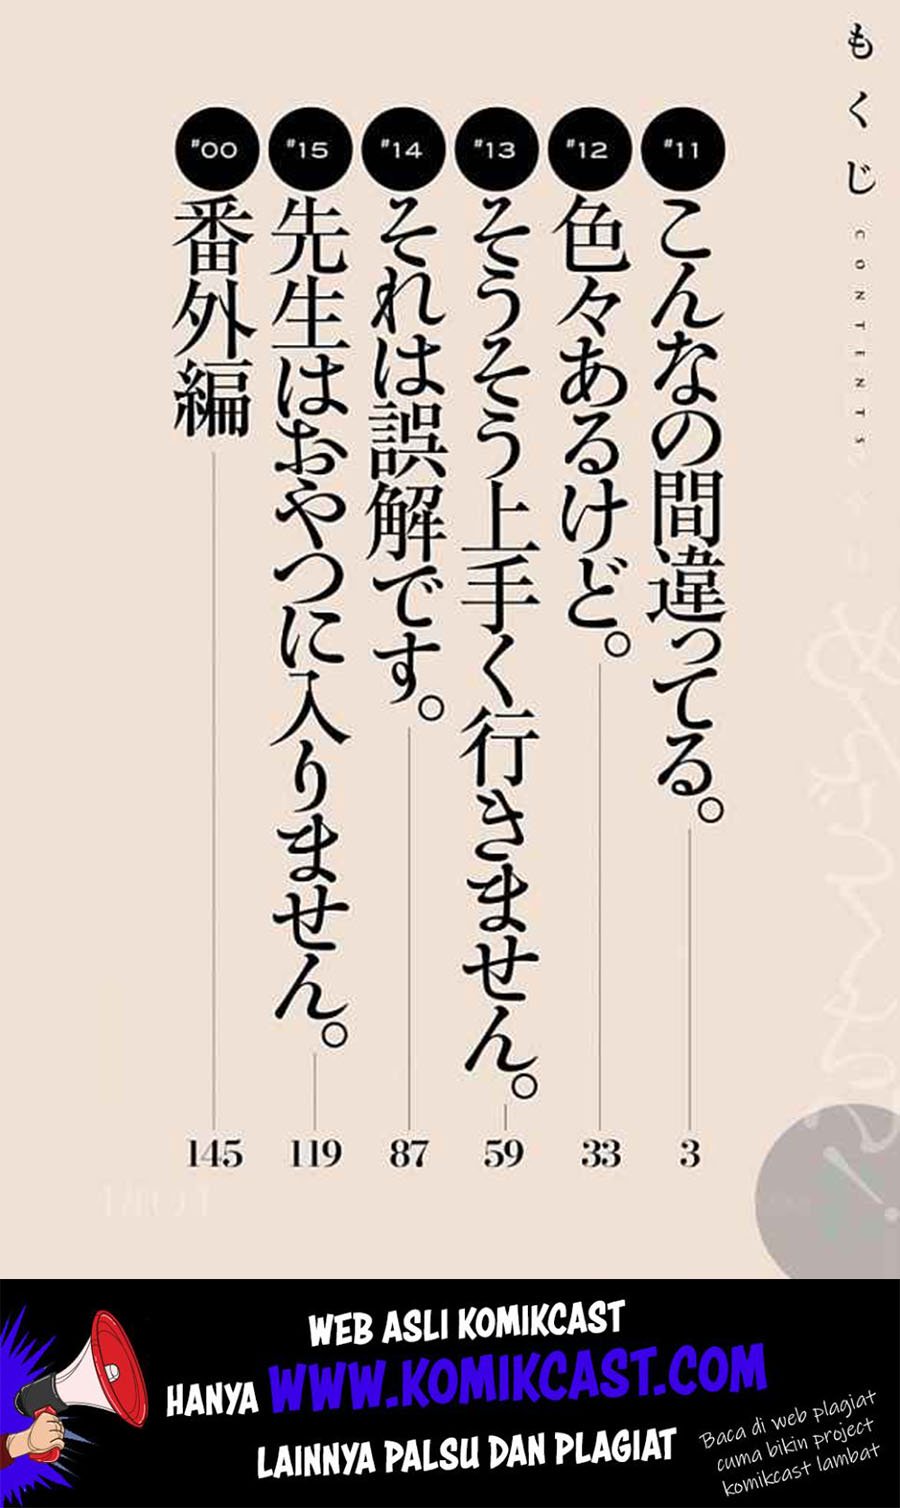 もくじ
CONTENTS
#11
こんなの間違ってる。
3
#12
色々あるけど。
33
#13
そうそう上手く行きません。
59
#14
それは誤解です。
87
#15
先生はおやつに入りません。
119
#00
番外編
145
WEB ASLI KOMIKCAST
HANYA WWW.KOMIKCAST.COM
LAINNYA PALSU DAN PLAGIAT
Baca di web plagiat
cuma bikin project
komikcast lambat